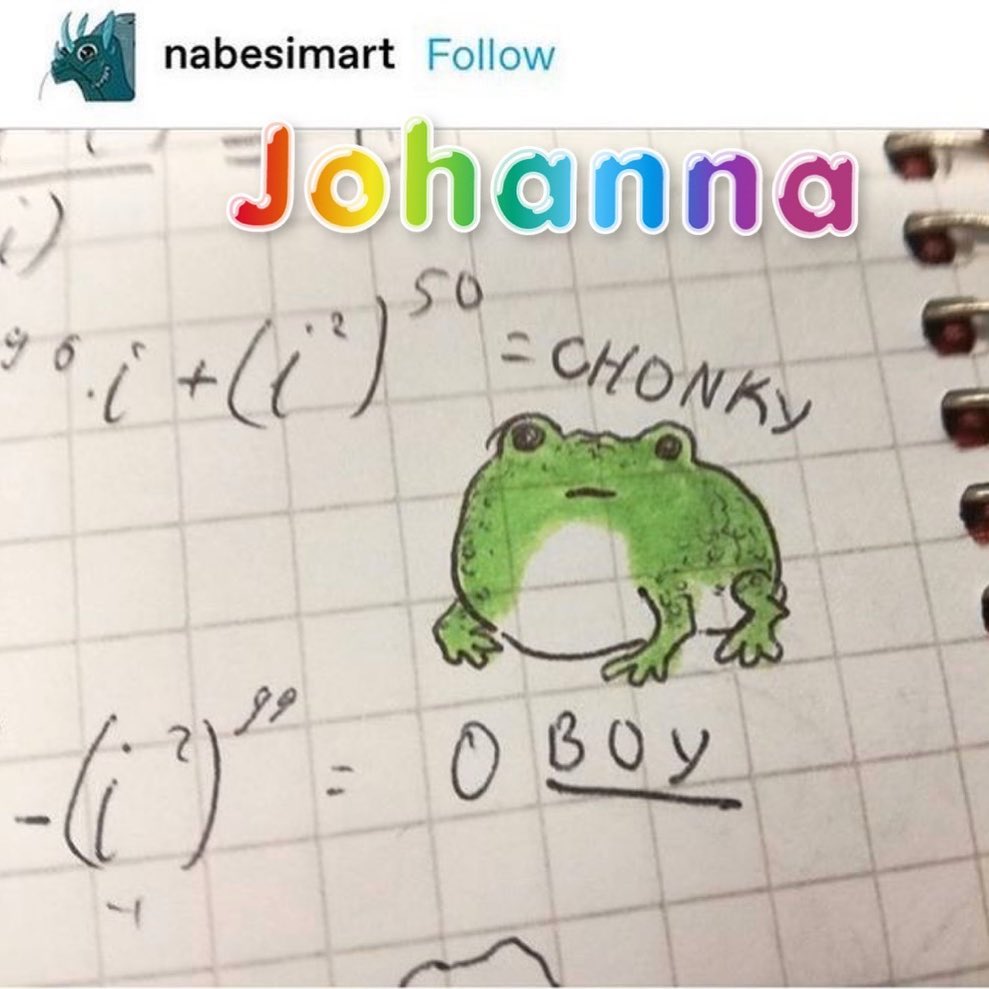 nabesimart Follow
Johanna
i)
96 · i + (i²)⁵⁰ = CHONKY
-(i²)⁹⁹ = 0 BOY
-1